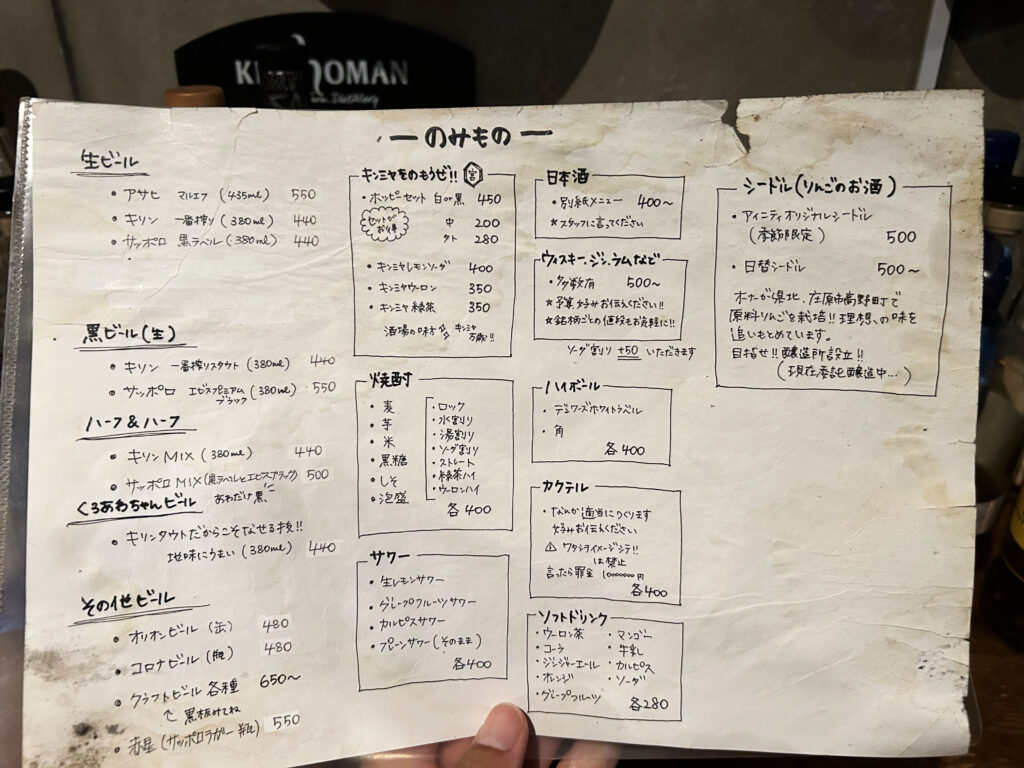 KI ROMAN
ー のみもの ー
生ビール
・アサヒ マルエフ (435ml) 550
・キリン 一番搾り (380ml) 440
・サッポロ 黒ラベル (380ml) 440
黒ビール(生)
・キリン 一番搾りスタウト (380ml) 440
・サッポロ エビスプレミアム (380ml) 550
ブラック
ハーフ&ハーフ
・キリンMIX (380ml) 440
・サッポロMIX(黒ラベルとエビスブラック) 500
くろあわちゃんビール あわだけ黒
・キリンタウトだからこそなせる技!!
地味にうまい (380ml) 440
その他ビール
・オリオンビール (缶) 480
・コロナビール (瓶) 480
・クラフトビール 各種 650〜
黒板みてね
・赤星 (サッポロラガー 瓶) 550
キンミヤをのもうぜ!! 宮
・ホッピーセット 白or黒 450
セットが
お得
中 200
外 280
・キンミヤレモンソーダ 400
・キンミヤウーロン 350
・キンミヤ緑茶 350
酒場の味方 キンミヤ
万歳!!
焼酎
・麦
・芋
・米
・黒糖
・しそ
・泡盛
・ロック
・水割り
・湯割り
・ソーダ割り
・ストレート
・緑茶ハイ
・ウーロンハイ
各400
サワー
・生レモンサワー
・グレープフルーツサワー
・カルピスサワー
・プレーンサワー(そのまま)
各400
日本酒
・別紙メニュー 400〜
☆スタッフに言ってください
ウィスキー、ジン、ラムなど
・多数有 500〜
☆予算、好みお伝えください!!
☆銘柄ごとの値段もお気軽に!!
ソーダ割り +50 いただきます
ハイボール
・デュワーズホワイトラベル
・角
各400
カクテル
・なんか適当につくります
好みお伝えください
⚠ ワタシライメージシテ!!
は禁止
言ったら罰金 10000000円
各400
ソフトドリンク
・ウーロン茶
・コーラ
・ジンジャーエール
・オレンジ
・グレープフルーツ
・マンゴー
・牛乳
・カルピス
・ソーダ
各280
シードル(りんごのお酒)
・アィニティオリジナルシードル
(季節限定) 500
・日替シードル 500〜
オーナーが県北、庄原市高野町で
原料りんごを栽培!!理想の味を
追いもとめています。
目指せ!!醸造所設立!!
(現在委託醸造中…)